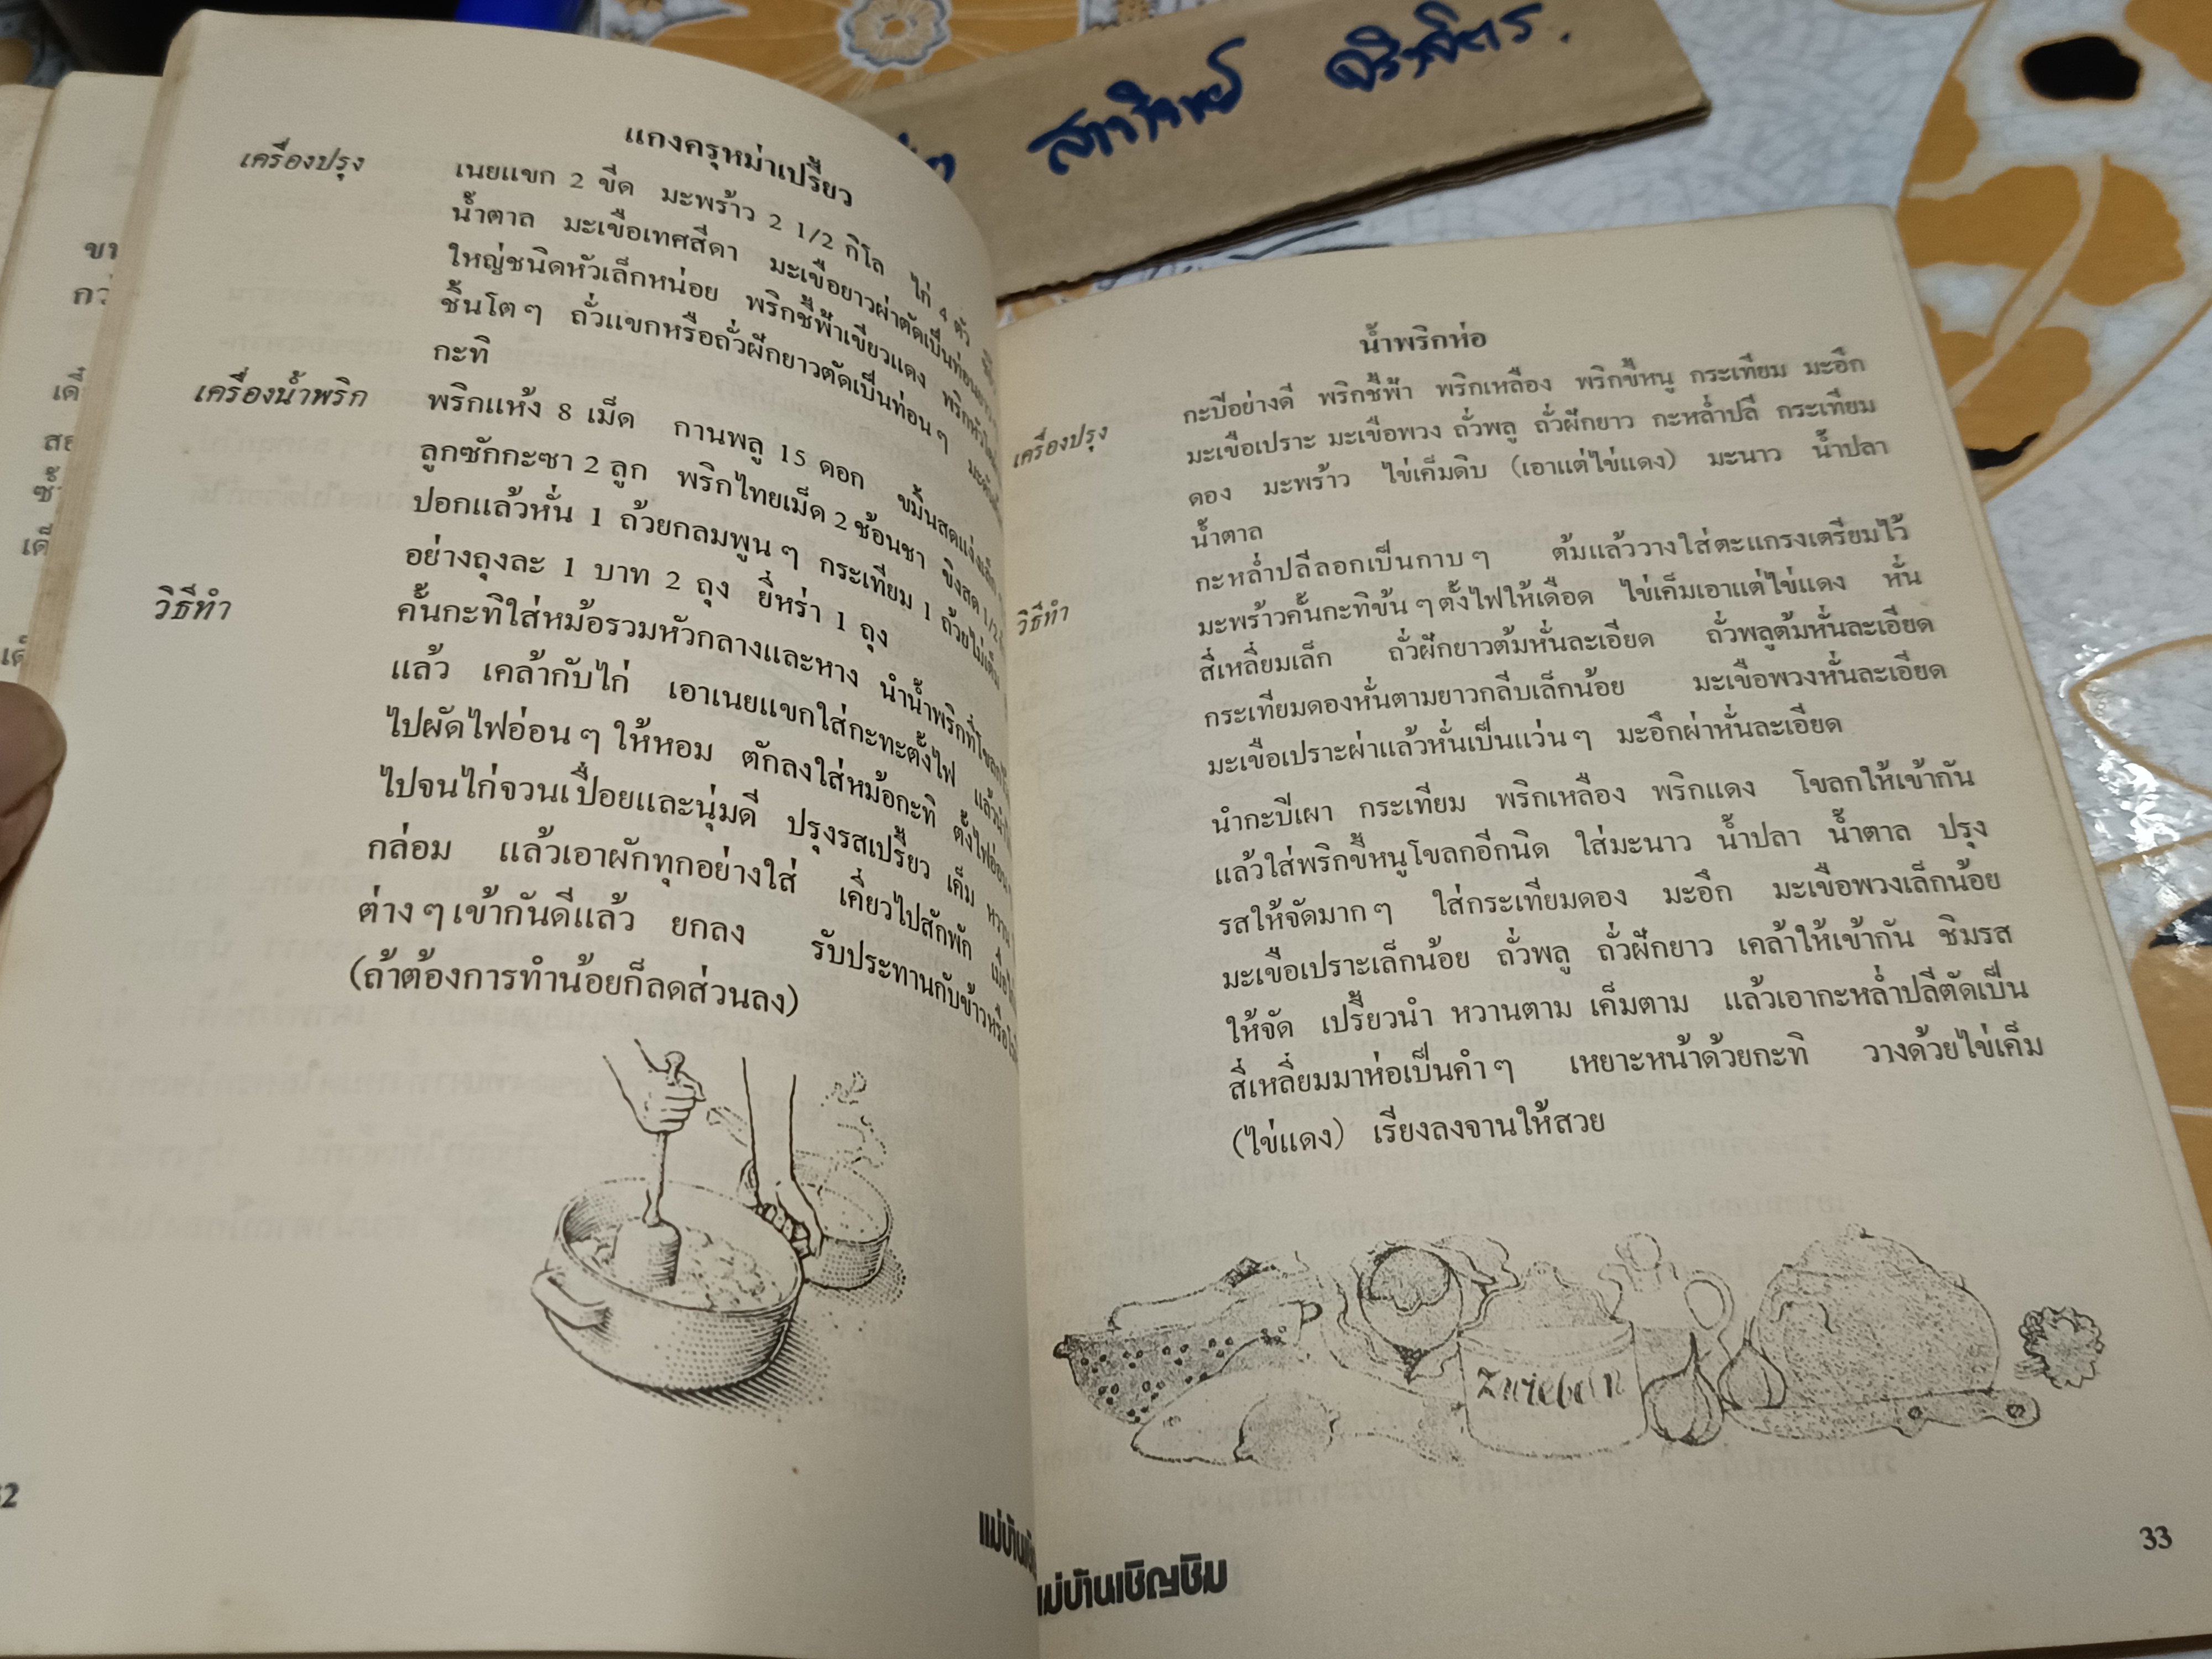 แกงครุหม่าเปรี้ยว
เครื่องปรุง
เนยแขก 2 ขีด มะพร้าว 2 1/2 กิโล ไก่ 4 ตัว
น้ำตาล มะเขือเทศสีดา มะเขือยาวผ่าตัดเป็นท่อน
ใหญ่ชนิดหัวเล็กหน่อย พริกชี้ฟ้าเขียวแดง พริกหัวใหญ่
ชิ้นโตๆ ถั่วแขกหรือถั่วฝักยาวตัดเป็นท่อนๆ
กะทิ
เครื่องน้ำพริก
พริกแห้ง 8 เม็ด กานพลู 15 ดอก ขมิ้นสดแง่งเล็ก
ลูกซักกะซา 2 ลูก พริกไทยเม็ด 2 ช้อนชา ขิงสด 1/2
ปอกแล้วหั่น 1 ถ้วยกลมพูนๆ กระเทียม 1 ถ้วยไม่เต็ม
อย่างถุงละ 1 บาท 2 ถุง ยี่หร่า 1 ถุง
วิธีทำ
คั้นกะทิใส่หม้อรวมหัวกลางและหาง นำน้ำพริกที่โขลกไว้
แล้ว เคล้ากับไก่ เอาเนยแขกใส่กะทะตั้งไฟ
ไปผัดไฟอ่อนๆ ให้หอม ตักลงใส่หม้อกะทิ ตั้งไฟอ่อน
ไปจนไก่จวนเปื่อยและนุ่มดี ปรุงรสเปรี้ยว เค็ม หวาน
กล่อม แล้วเอาผักทุกอย่างใส่ เคี่ยวไปสักพัก
ต่างๆ เข้ากันดีแล้ว ยกลง รับประทานกับข้าวหรือ
(ถ้าต้องการทำน้อยก็ลดส่วนลง)
น้ำพริกห่อ
เครื่องปรุง
กะปิอย่างดี พริกชี้ฟ้า พริกเหลือง พริกขี้หนู กระเทียม มะอึก
มะเขือเปราะ มะเขือพวง ถั่วพลู ถั่วฝักยาว กะหล่ำปลี กระเทียม
ดอง มะพร้าว ไข่เค็มดิบ (เอาแต่ไข่แดง) มะนาว น้ำปลา
น้ำตาล
วิธีทำ
กะหล่ำปลีลอกเป็นกาบๆ ต้มแล้ววางใส่ตะแกรงเตรียมไว้
มะพร้าวคั้นกะทิข้นๆ ตั้งไฟให้เดือด ไข่เค็มเอาแต่ไข่แดง หั่น
สี่เหลี่ยมเล็ก ถั่วฝักยาวต้มหั่นละเอียด ถั่วพลูต้มหั่นละเอียด
กระเทียมดองหั่นตามยาวกลีบเล็กน้อย มะเขือพวงหั่นละเอียด
มะเขือเปราะผ่าแล้วหั่นเป็นแว่นๆ มะอึกผ่าหั่นละเอียด
นำกะปิเผา กระเทียม พริกเหลือง พริกแดง โขลกให้เข้ากัน
แล้วใส่พริกขี้หนูโขลกอีกนิด ใส่มะนาว น้ำปลา น้ำตาล ปรุง
รสให้จัดมากๆ ใส่กระเทียมดอง มะอึก มะเขือพวงเล็กน้อย
มะเขือเปราะเล็กน้อย ถั่วพลู ถั่วฝักยาว เคล้าให้เข้ากัน ชิมรส
ให้จัด เปรี้ยวนำ หวานตาม เค็มตาม แล้วเอากะหล่ำปลีตัดเป็น
สี่เหลี่ยมมาห่อเป็นคำๆ เหยาะหน้าด้วยกะทิ วางด้วยไข่เค็ม
(ไข่แดง) เรียงลงจานให้สวย
แม่บ้าน
แม่บ้านเชิญชิม
33